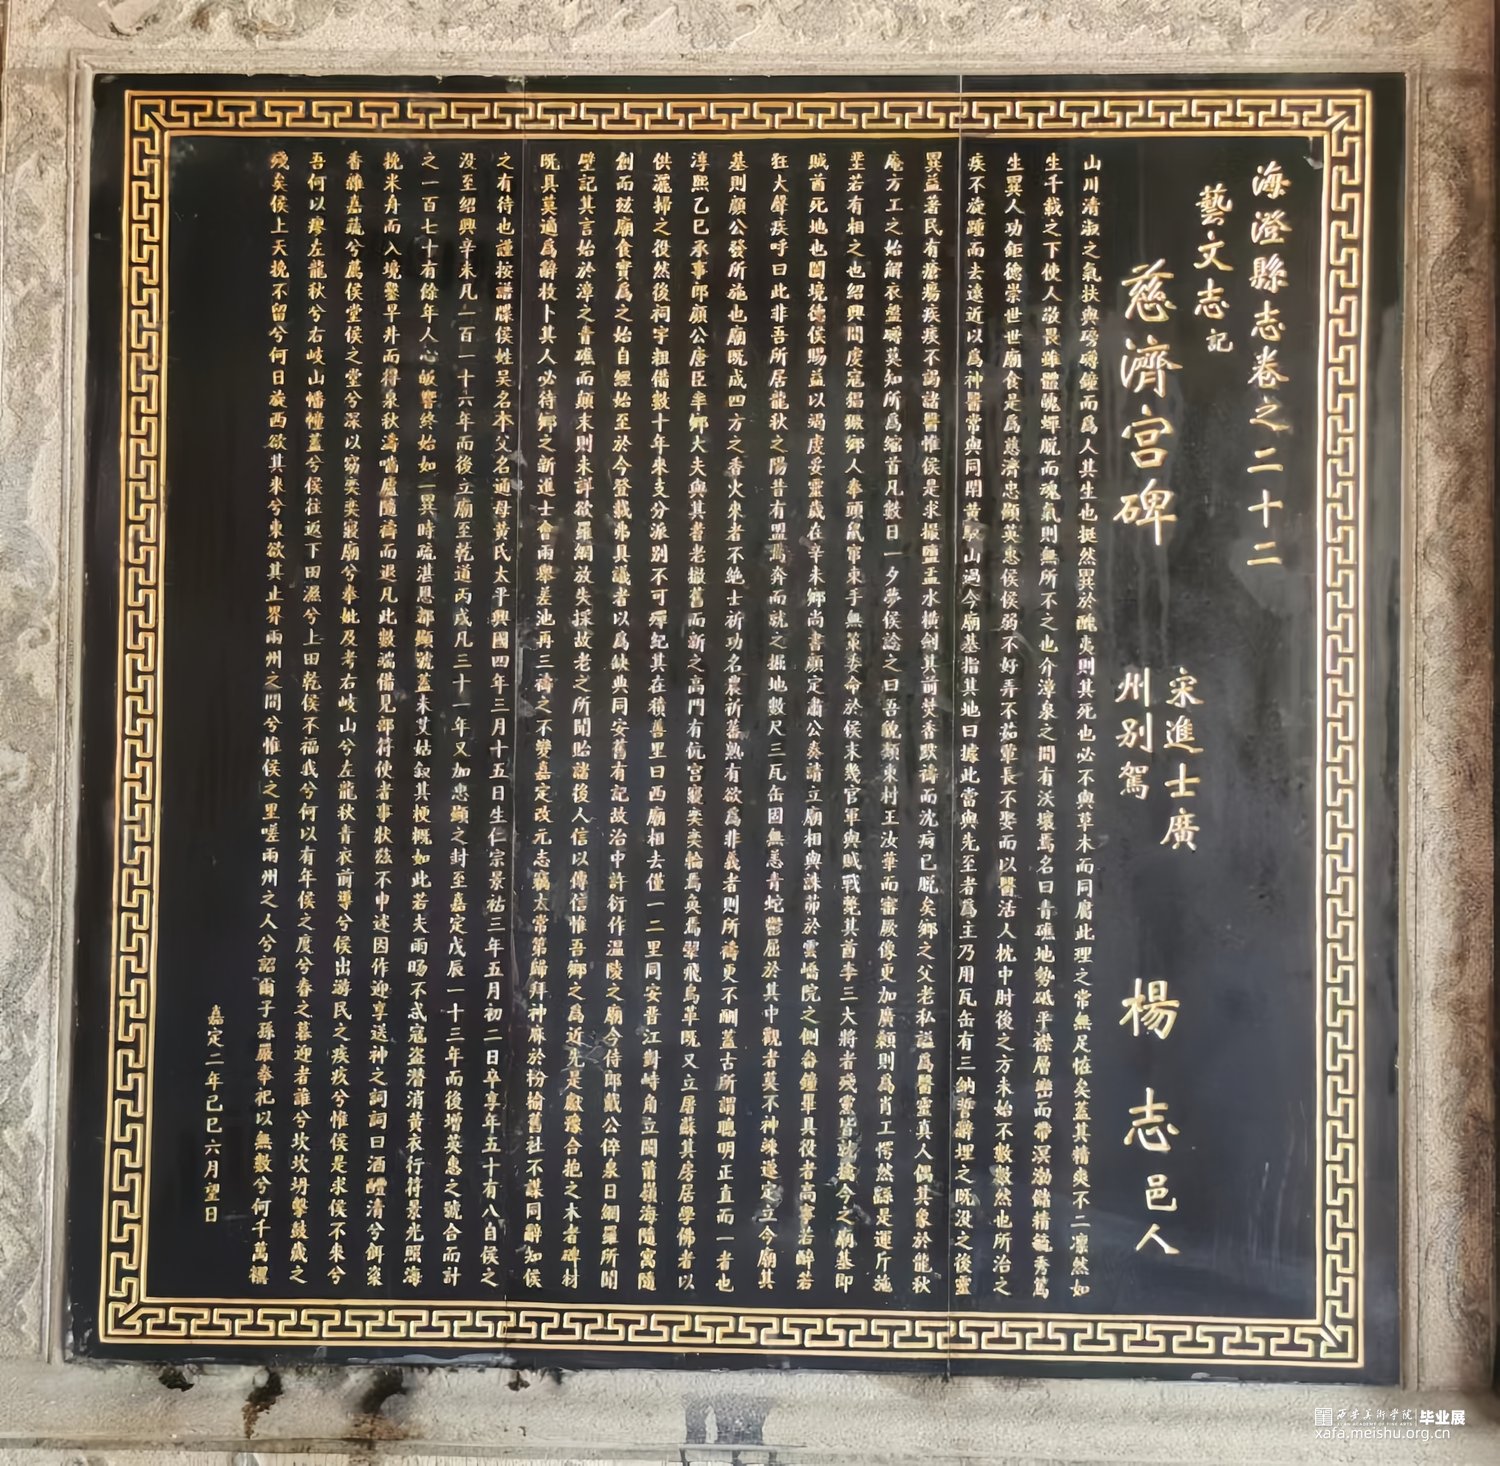 海澄縣志卷之二十二
藝文志記
慈濟宫碑
宋進士廣
州别駕
楊志邑人
山川清淑之氣扶輿磅礡鍾而爲人其生也挺然異於醜夷則其死也必不與草木而同腐此理之常無足怪矣蓋其精爽不二凛然如
生千載之下使人敬畏雖體魄蟬脱而魂氣則無所不之也介漳泉之間有沃壤焉名曰青礁地勢砥平襟層巒而帶溟渤儲精毓秀篤
生異人功鉅德崇世世廟食是爲慈濟忠顯英惠侯侯弱不好弄不茹葷長不娶而以醫活人枕中肘後之方未始不數數然也所治之
疾不旋踵而去遠近以爲神醫常與同閈黄馭山過今廟基指其地曰據此當與先至者爲主乃用瓦缶有三納誓辭埋之既没之後靈
異益著民有瘡瘍疾疢不謁諸醫惟侯是求撮鹽盂水横劍其前焚香默禱而沈疴已脱矣鄉之父老私謚爲醫靈真人偶其象於龍秋
庵方工之始解衣盤礡莫知所爲縮首凡數日一夕夢侯諗之曰吾貌類東村王汝華而審厥像更加廣顙則爲肖工愕然繇是運斤施
堊若有相之也紹興間虔寇猖獗鄉人奉頭鼠竄束手無策委命於侯未幾官軍與賊戰斃其酋李三大將者殘黨皆就擒今之廟基即
賊酋死地也闔境德侯賜益以竭虔妥靈歲在辛未鄉尚書顔定肅公奏請立廟相與誅茆於雲嶠院之側畚鍾畢具役者高亭若醉若
狂大聲疾呼曰此非吾所居龍秋之陽昔有盟焉奔而就之掘地數尺三瓦缶因無恙青蛇鬱屈於其中觀者莫不神竦遂定立今廟其
基則顔公發所施也廟既成四方之香火來者不絶士祈功名農祈蕃熟有欲爲非義者則所禱更不酬蓋古所謂聰明正直而一者也
淳熙乙巳承事郎顔公唐臣率鄉大夫與其耆老撤舊而新之高門有伉宫寢奕奕輪焉奂焉翬飛鳥革既又立屠蘇其房居學佛者以
供灑掃之役然後祠宇粗備數十年來支分派别不可殫記其在積善里曰西廟相去僅一二里同安晋江對峙角立閩莆嶺海隨寓隨
創而兹廟食實爲之始自經始至於今登載弗具議者以爲缺典同安舊有記故治中許衍作温陵之廟今侍郎戴公倅泉日網羅所聞
壁記其言始於漳之青礁而顛末則未詳欲羅網放失採故老之所聞貽諸後人信以傳信惟吾鄉之爲近先是獻豫合抱之木者碑材
既具莫適爲辭枚卜其人必待鄉之新進士會兩舉差池再三禱之不變嘉定改元志竊太常第歸拜神庥於枌榆舊社不謀同辭知侯
之有待也謹按譜牒侯姓吴名本父名通母黄氏太平興國四年三月十五日生仁宗景祐三年五月初二日卒享年五十有八自侯之
没至紹興辛未凡一百一十六年而後立廟至乾道丙戌凡三十一年又加忠顯之封至嘉定戊辰一十三年而後增英惠之號合而計
之一百七十有餘年人心皈嚮終始如一異時疏湛恩鄙顯號蓋未艾姑叙其梗概如此若夫雨暘不忒寇盗潛消黄衣行符景光照海
挽米舟而入境鑿旱井而得泉秋濤嚙廬隨禱而退凡此數端備見部符使者事狀兹不申述因作迎享送神之詞詞曰酒醴清兮餌粢
香雜嘉蔬兮薦侯堂侯之堂兮深以窈奕奕寢廟兮奉妣及考右岐山兮左龍秋青衣前導兮侯出游民之疾疢兮惟侯是求侯不來兮
吾何以瘳左龍秋兮右岐山幡幢蓋兮侯往返下田濕兮上田乾侯不福我兮何以有年侯之度兮春之暮迎者誰兮坎坎坍擊鼓歲之
殘矣侯上天挽不留兮何日旋西欲其來兮東欲其止界兩州之間兮惟侯之里嗟兩州之人兮詔爾子孫嚴奉祀以無斁兮何千萬禩
嘉定二年己巳六月望日
西安美術學院 毕业展
xafa.meishu.org.cn